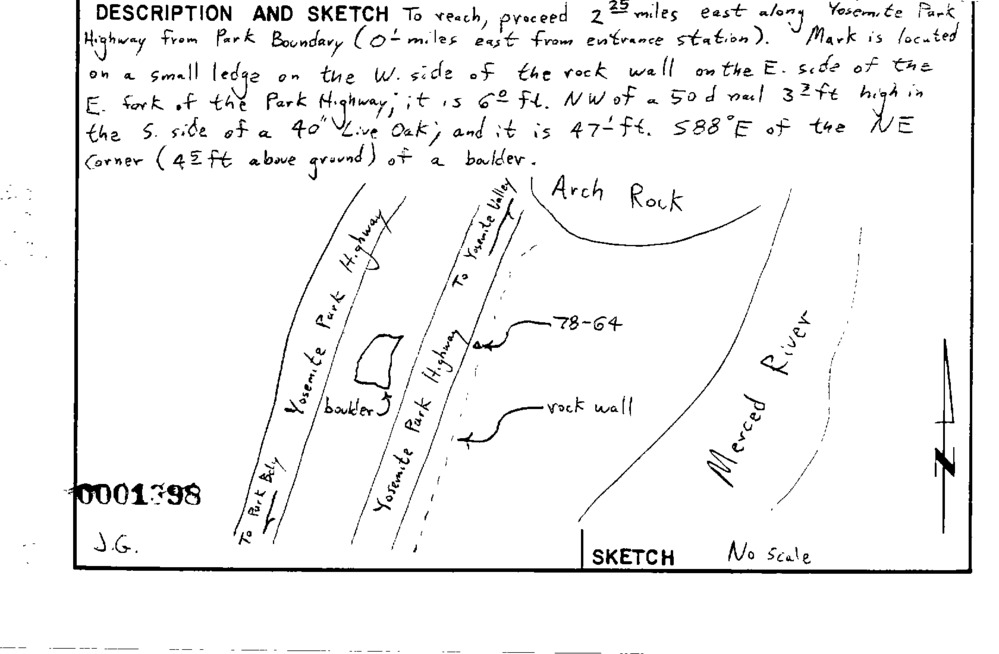 DESCRIPTION AND SKETCH To reach, proceed 2²⁵ miles east along Yosemite Park
Highway from Park Boundary (0¹ miles east from entrance station). Mark is located
on a small ledge on the W. side of the rock wall on the E. side of the
E. fork of the Park Highway; it is 6⁰ ft. NW of a 50 d nail 3² ft high in
the S. side of a 40" Live Oak; and it is 47¹ ft. S88°E of the NE
Corner (4⁵ ft above ground) of a boulder.
Arch Rock
Yosemite Park Highway
To Yosemite Valley
78-64
Yosemite Park Highway
boulder
rock wall
Merced River
To Park Bdy
N
J.G.
SKETCH No scale